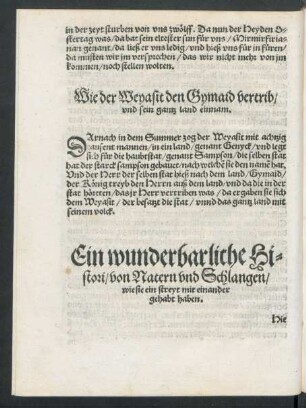 in der zeyt sturben von vns zwölff. Da nun der Heyden Os-
stertag was/ da bat sein eltester sun für vns/ Mirmirsirias-
nar genant/ da ließ er vns ledig/ vnd hieß vns für in füren/
da musten wir jm versprechen/ das wir nicht mehr von jm
kommen/ noch stellen wolten.
Wie der Weyasit den Gymaid vertrib/
vnd sein gantz land einnam.
DArnach in dem Summer zog der Weyasit mit achtzig
tausent mannen/ in ein land/ genant Genyck/ vnd legt
sich für die haubtstat/ genant Sampson/ die selben stat
hat der starck sampson gebauet/ nach welche sie den name hat.
Vnd der Herr der selben stat hieß nach dem land/ Gymaid/
der König treyb den Herrn auß dem land/ vnd da die in der
stat hörten/ das jr Herr vertriben was/ da ergaben sie sich
dem Weyasit/ der besatzt die stat/ vnnd das gantz land mit
seinem volck.
Ein wunderbarliche Hi-
stori/ von Natern vnd Schlangen/
wie sie ein streyt mit einander
gehabt haben.
Hie